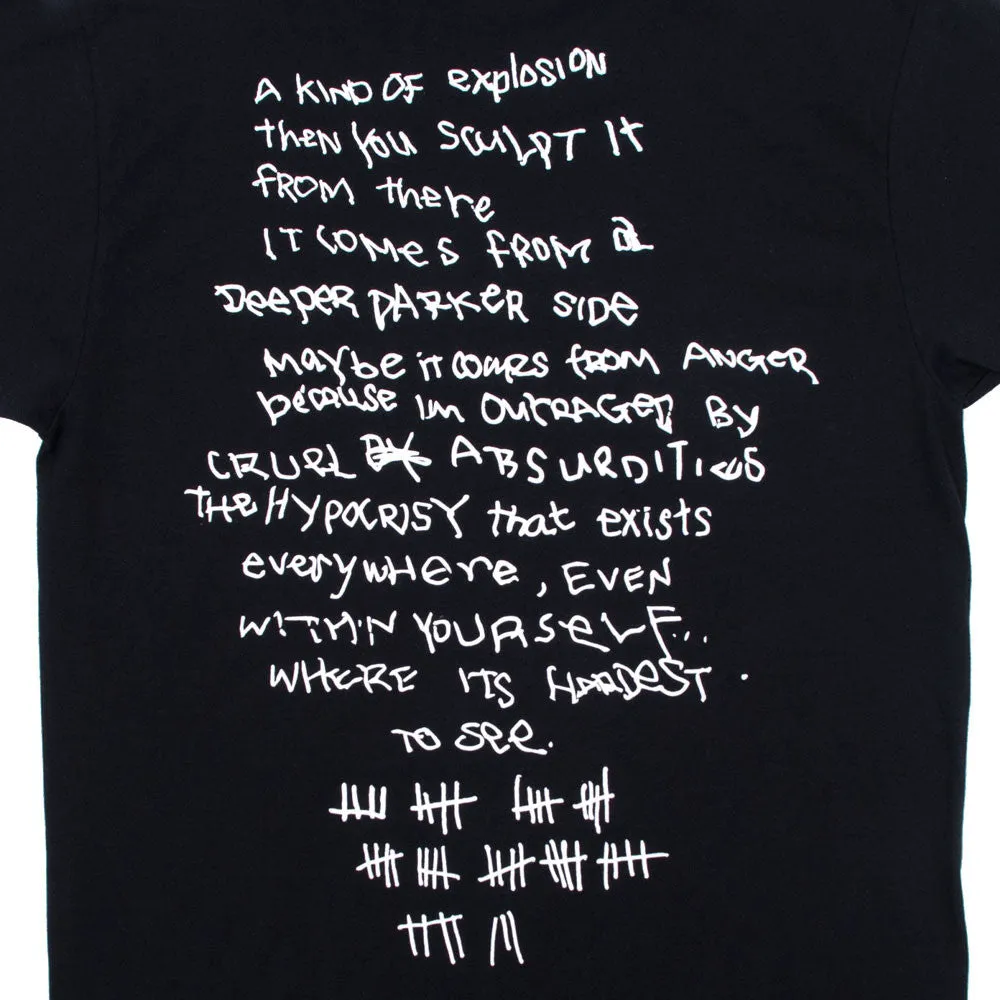 A KIND OF explosion
then you SCULPT IT
FROM there
IT COMES FROM a
DeePER DARKER SIDE
Maybe it comes from ANGER
because Im OUTRAGED By
CRUEL ABSURDITIES
THE HYPOCRISY that exists
everywHere, EVEN
WITHIN YOURSeLF...
WHERE ITS HARDEST.
TO SEE.